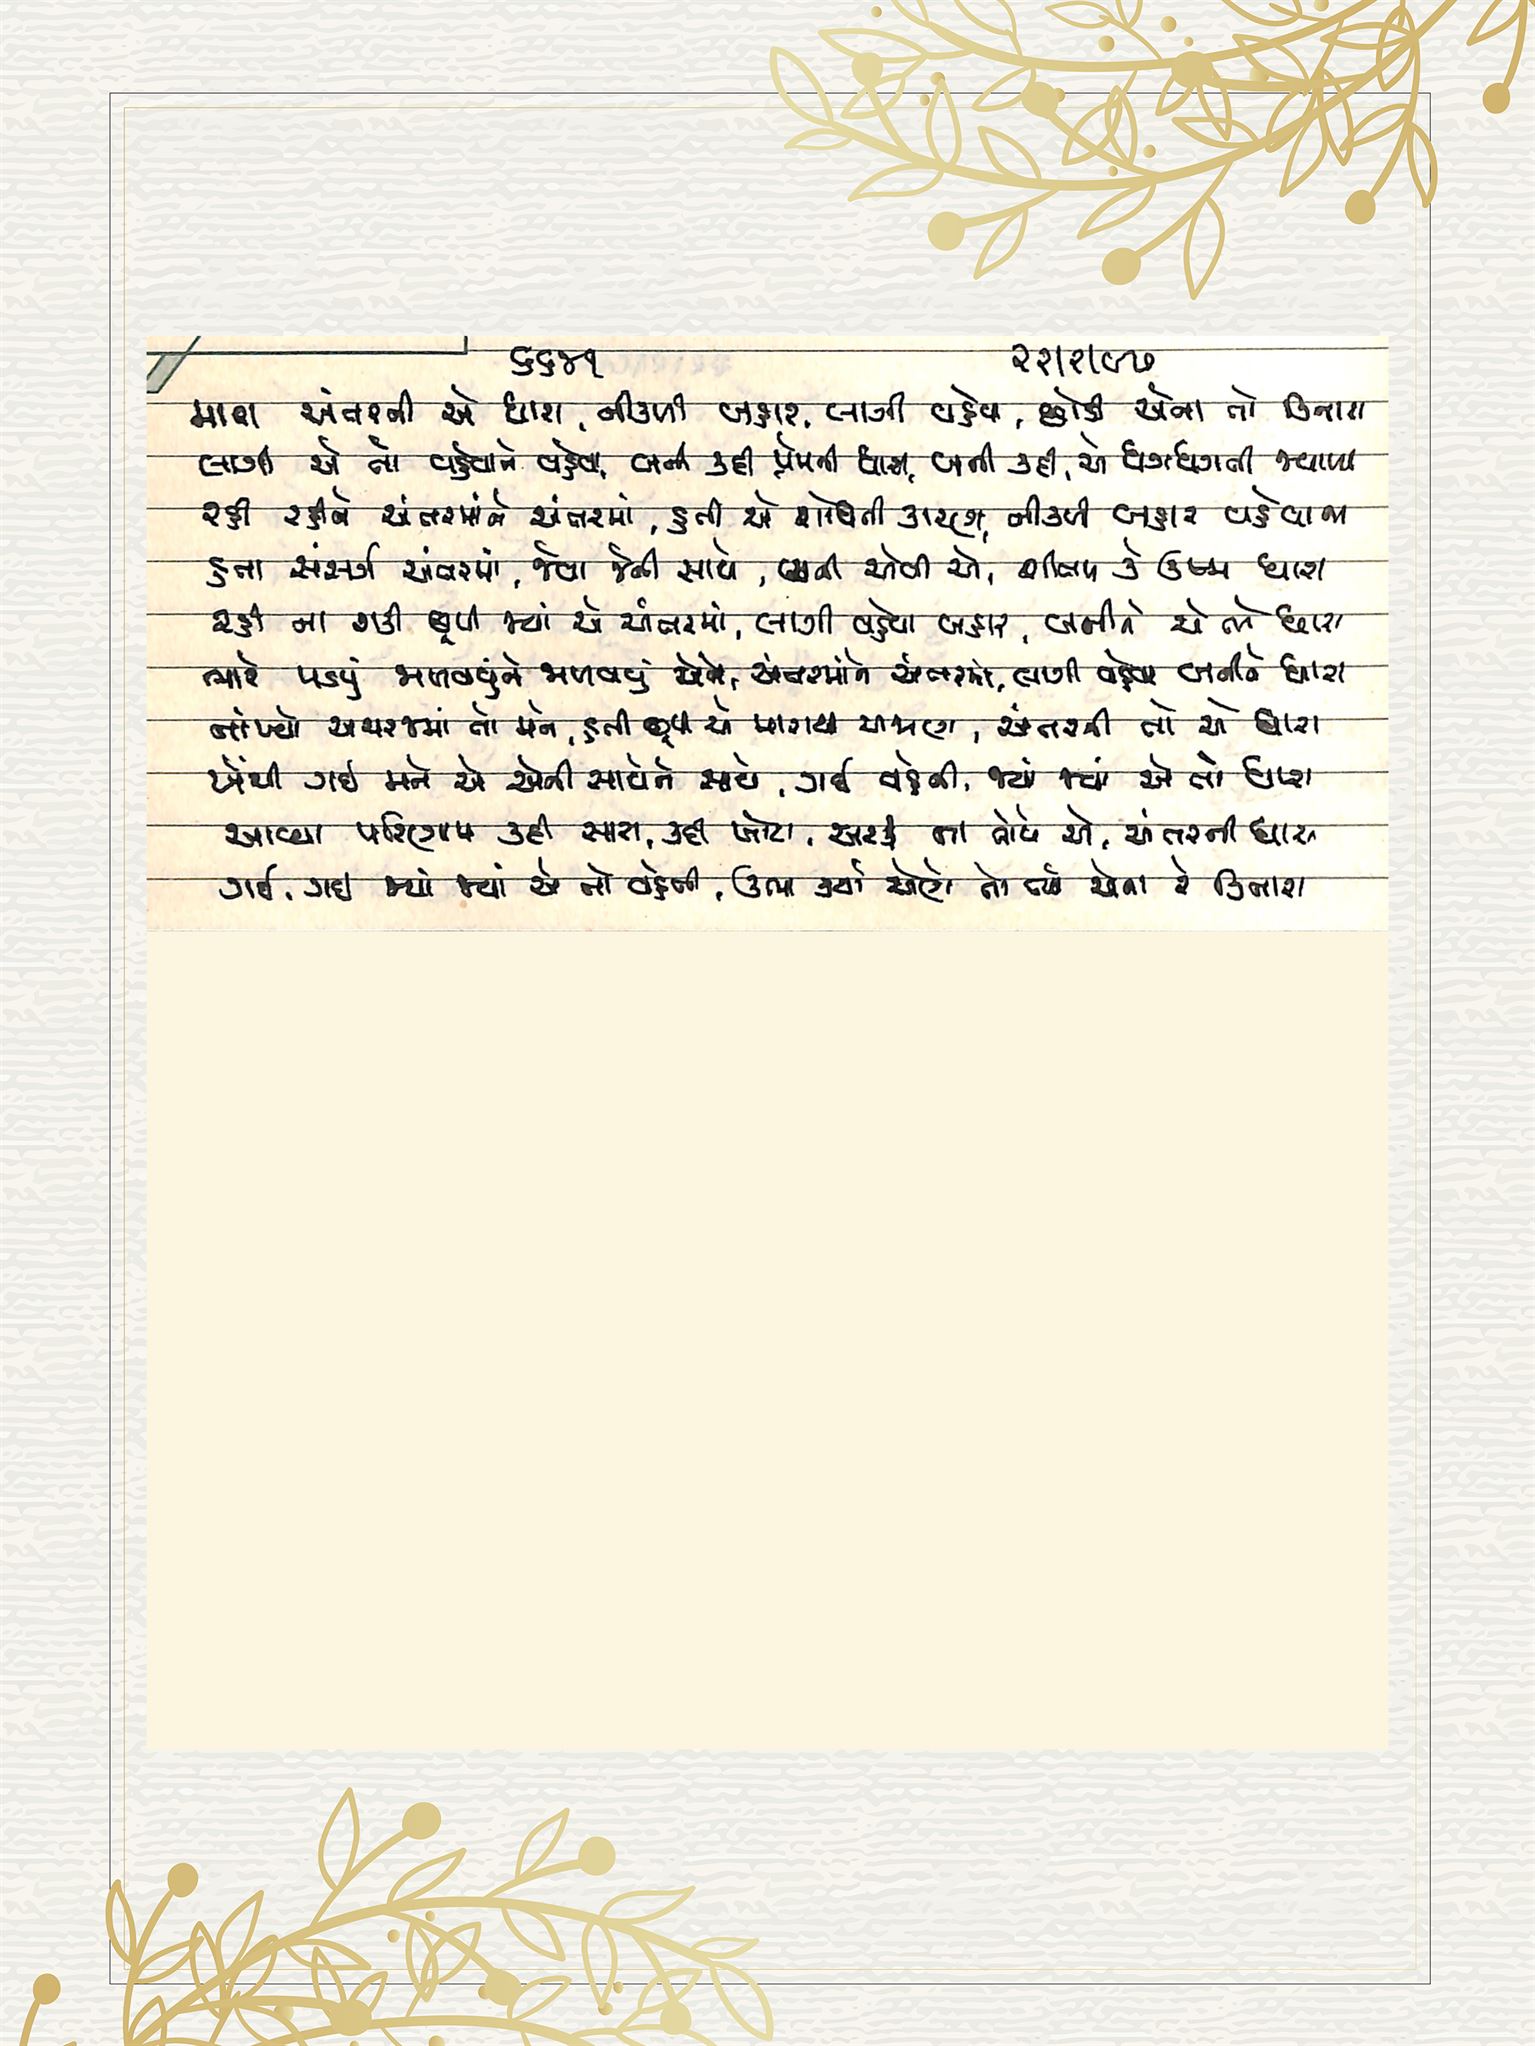 ૬૬૪૧ ૨૨/૨/૯૭
મારા અંતરની એ ધારા, નીકળી બહાર, લાગી વહેવા, છોડી એના તો કિનારા
લાગી એ તો વહેવાને વહેવા, બની કદી પ્રેમની ધારા, બની કદી, એ ધગધગતી જ્વાળા
રહી રહીને અંતરમાંને અંતરમાં, હતી એ શોધતી કારણ, નીકળી બહાર વહેવાના
હતા સંસર્ગ અંતરમાં, જેવા જેની સાથે, બની એવી એ, શીતળ કે ઉષ્મ ધારા
રહી ના શકી છૂપી જ્યાં એ અંતરમાં, લાગી વહેવા બહાર, બનીને એ ધારા
ત્યારે પડયું જાળવવુંને જાળવવું એને, અંતરમાંને અંતરમાં, લાગી વહેવા બનીને ધારા
નાંખ્યો અચરજમાં તો મને, હતી છૂપી એ મારાથી અજાણ, અંતરની તો એ ધારા
ખેંચી ગઈ મને એ એની સાથેને સાથે, ગઈ વહેતી, જ્યાં જ્યાં એ તો ધારા
આવ્યા પરિણામ કદી સારા, કદી ખોટા, અટકી ના તોયે એ, અંતરની ધારા
ગઈ, ગઈ જ્યાં જ્યાં એ તો વહેતી, ઊભા કર્યા એણે તો એના રે કિનારા